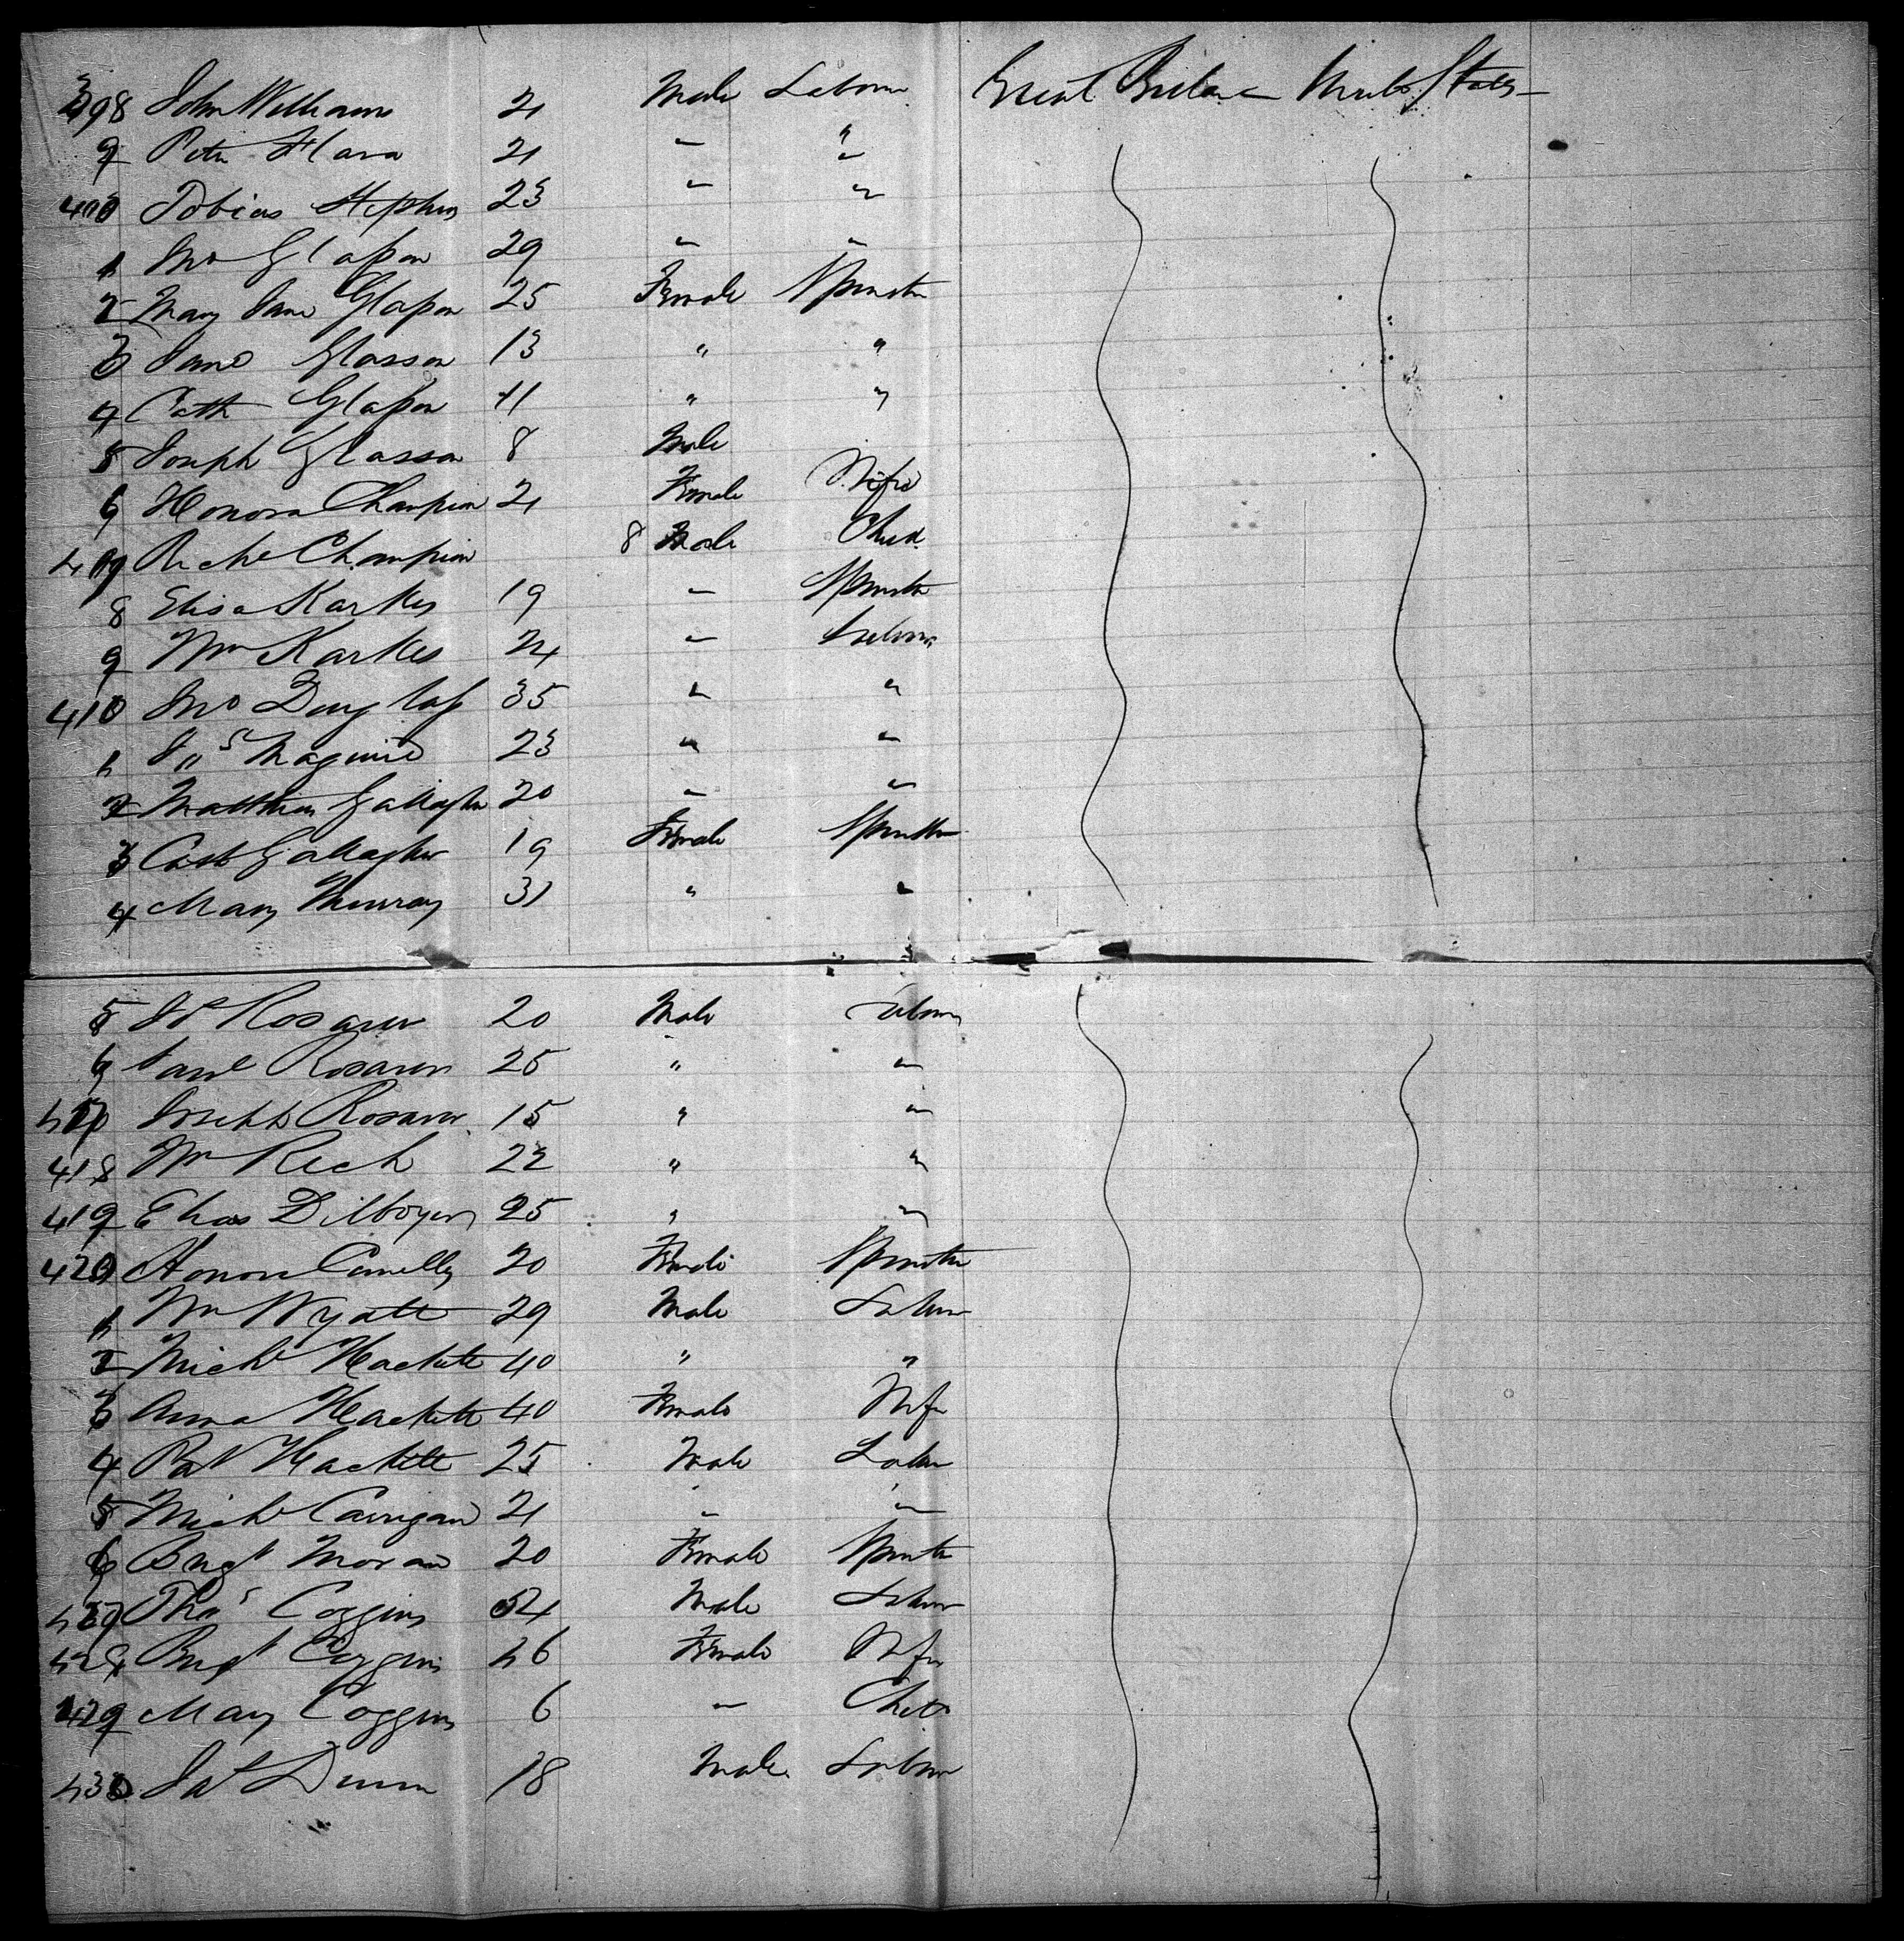 398 John Williams 21 Male Labour Great Britain United States
9 Peter Hara 21 " "
400 Tobias Stephens 23 " "
1 Jno Glasson 29 " "
2 Mary Jane Glasson 25 Female Spinster
3 Jane Glasson 13 " "
4 Cath Glasson 11 " "
5 Joseph Glasson 8 Male
6 Honora Champion 21 Female Wife
407 Richd Champion 8 Male Child
8 Elisa Karkes 19 " Spinster
9 Wm Karkes 24 " Labour
410 Jno Douglass 35 " "
1 Jas Maguire 23 " "
2 Matthew Gallagher 20 " "
3 Cath Gallagher 19 Female Spinster
4 Mary Murray 31 " "
5 20 Male Labour
6 25 " "
417 Joseph 15 " "
418 Wm Rich 22 " "
419 25 " "
420 Honora Connelly 20 Female Spinster
1 Wm Wyatt 29 Male Labour
2 Michl Hackett 40 " "
3 Anna Hackett 40 Female Wife
4 Pat Hackett 25 Male Labour
5 Michl Carrigan 21 " "
6 Bridgt Moran 20 Female Spinster
427 Thos Coggins 54 Male Labour
428 Bridgt Coggins 46 Female Wife
429 Mary Coggins 6 " Child
430 Dunn 18 Male Labour